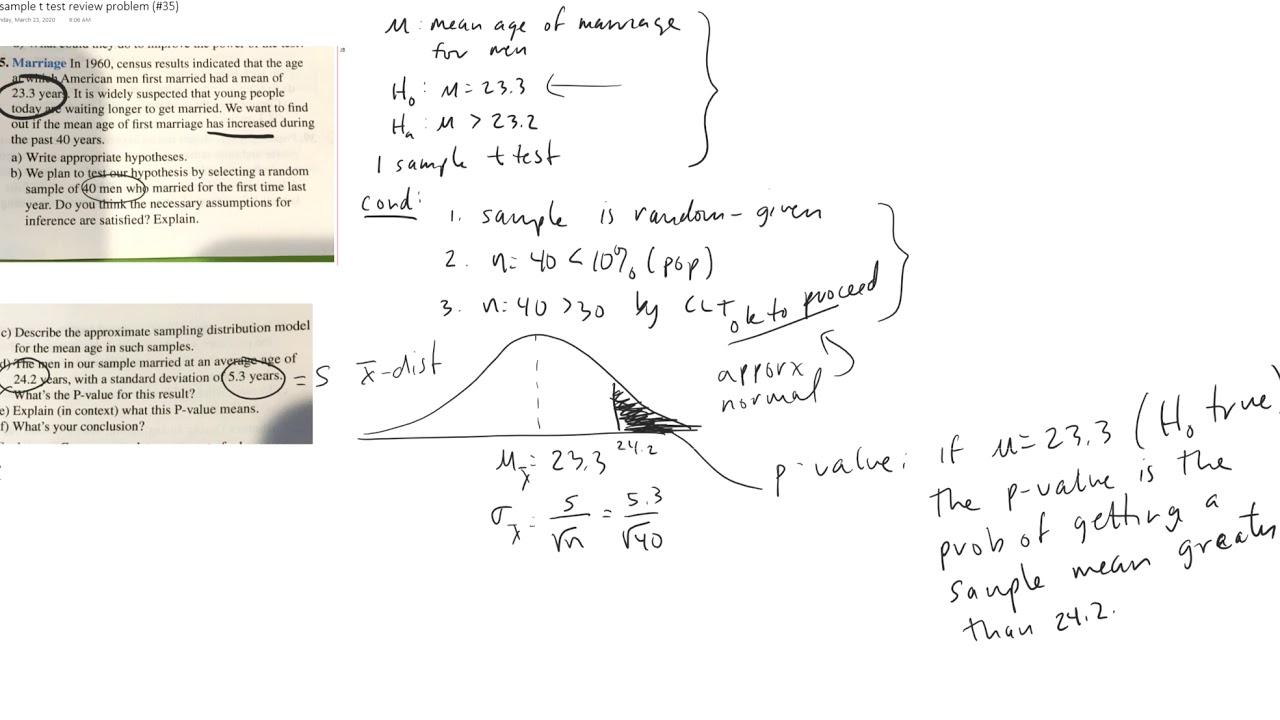 sample t test review problem (#35)
nday, March 23, 2020 9:06 AM
5. Marriage In 1960, census results indicated that the age
at which American men first married had a mean of
23.3 years. It is widely suspected that young people
today are waiting longer to get married. We want to find
out if the mean age of first marriage has increased during
the past 40 years.
a) Write appropriate hypotheses.
b) We plan to test our hypothesis by selecting a random
sample of 40 men who married for the first time last
year. Do you think the necessary assumptions for
inference are satisfied? Explain.
c) Describe the approximate sampling distribution model
for the mean age in such samples.
d) The men in our sample married at an average age of
24.2 years, with a standard deviation of 5.3 years.
What's the P-value for this result?
e) Explain (in context) what this P-value means.
f) What's your conclusion?
= S
M: mean age of marriage
for men
H₀: M = 23.3 ←
Hₐ: M > 23.2
1 sample t test
cond:
1. sample is random - given
2. n = 40 < 10% (pop)
3. n = 40 > 30 by CLT ok to proceed
apporx
normal
x̄-dist
24.2
M_x̄ = 23.3
σ_x̄ = S/√n = 5.3/√40
p-value: if M = 23.3 (H₀ true)
the p-value is the
prob of getting a
sample mean greater
than 24.2.